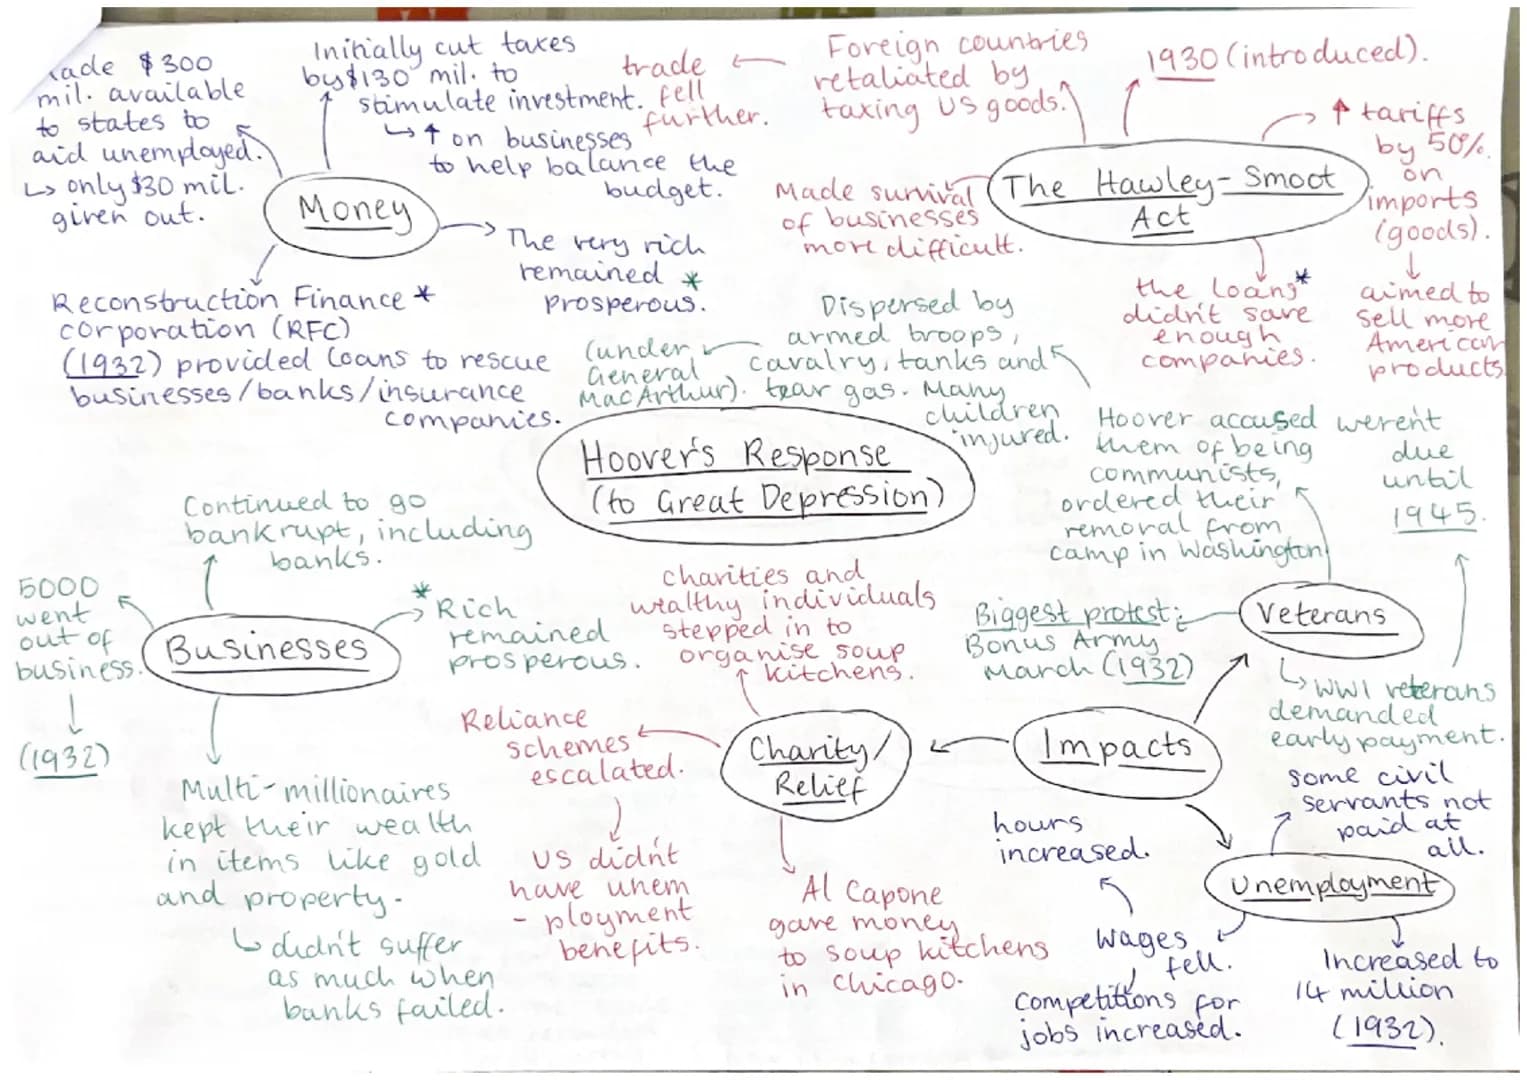 ade $300
mil. available
to states to
aid unemployed.
↳ only $30 mil.
given out.
Initially cut taxes
by $130 mil. to
stimulate investment.
↳ ↑ on businesses
to help balance the
budget.
Money
The very rich
remained *
prosperous.
Reconstruction Finance *
corporation (RFC)
(1932) provided loans to rescue
businesses/banks/insurance
companies.
trade
fell
further.
Foreign countries
retaliated by
taxing US goods.
1930 (introduced).
↑ tariffs
by 50%.
on
imports
(goods).
aimed to
sell more
American
products
The Hawley-Smoot
Act
Made survival
of businesses
more difficult.
the loans*
didn't save
enough
companies.
Hoover's Response
(to Great Depression)
Dispersed by
armed troops,
cavalry, tanks and
tear gas. Many
children
injured.
(under
General
MacArthur).
Hoover accused
them of being
communists,
ordered their
removal from
camp in Washington
weren't
due
until
1945.
Veterans
Biggest protest:
Bonus Army
March (1932)
↳ WWI veterans
demanded
early payment.
Continued to go
bankrupt, including
banks.
5000
went
out of
business.
(1932)
Businesses
* Rich
remained
prosperous.
Multi-millionaires
kept their wealth
in items like gold
and property.
↳ didn't suffer
as much when
banks failed.
charities and
wealthy individuals
stepped in to
organise soup
kitchens.
Reliance
schemes
escalated.
US didn't
have unem
- ployment
benefits.
Charity/
Relief
Al Capone
gave money
to soup kitchens
in Chicago.
Impacts
some civil
servants not
paid at
all.
Unemployment
hours
increased.
Wages
fell.
competitions for
jobs increased.
Increased to
14 million
(1932).